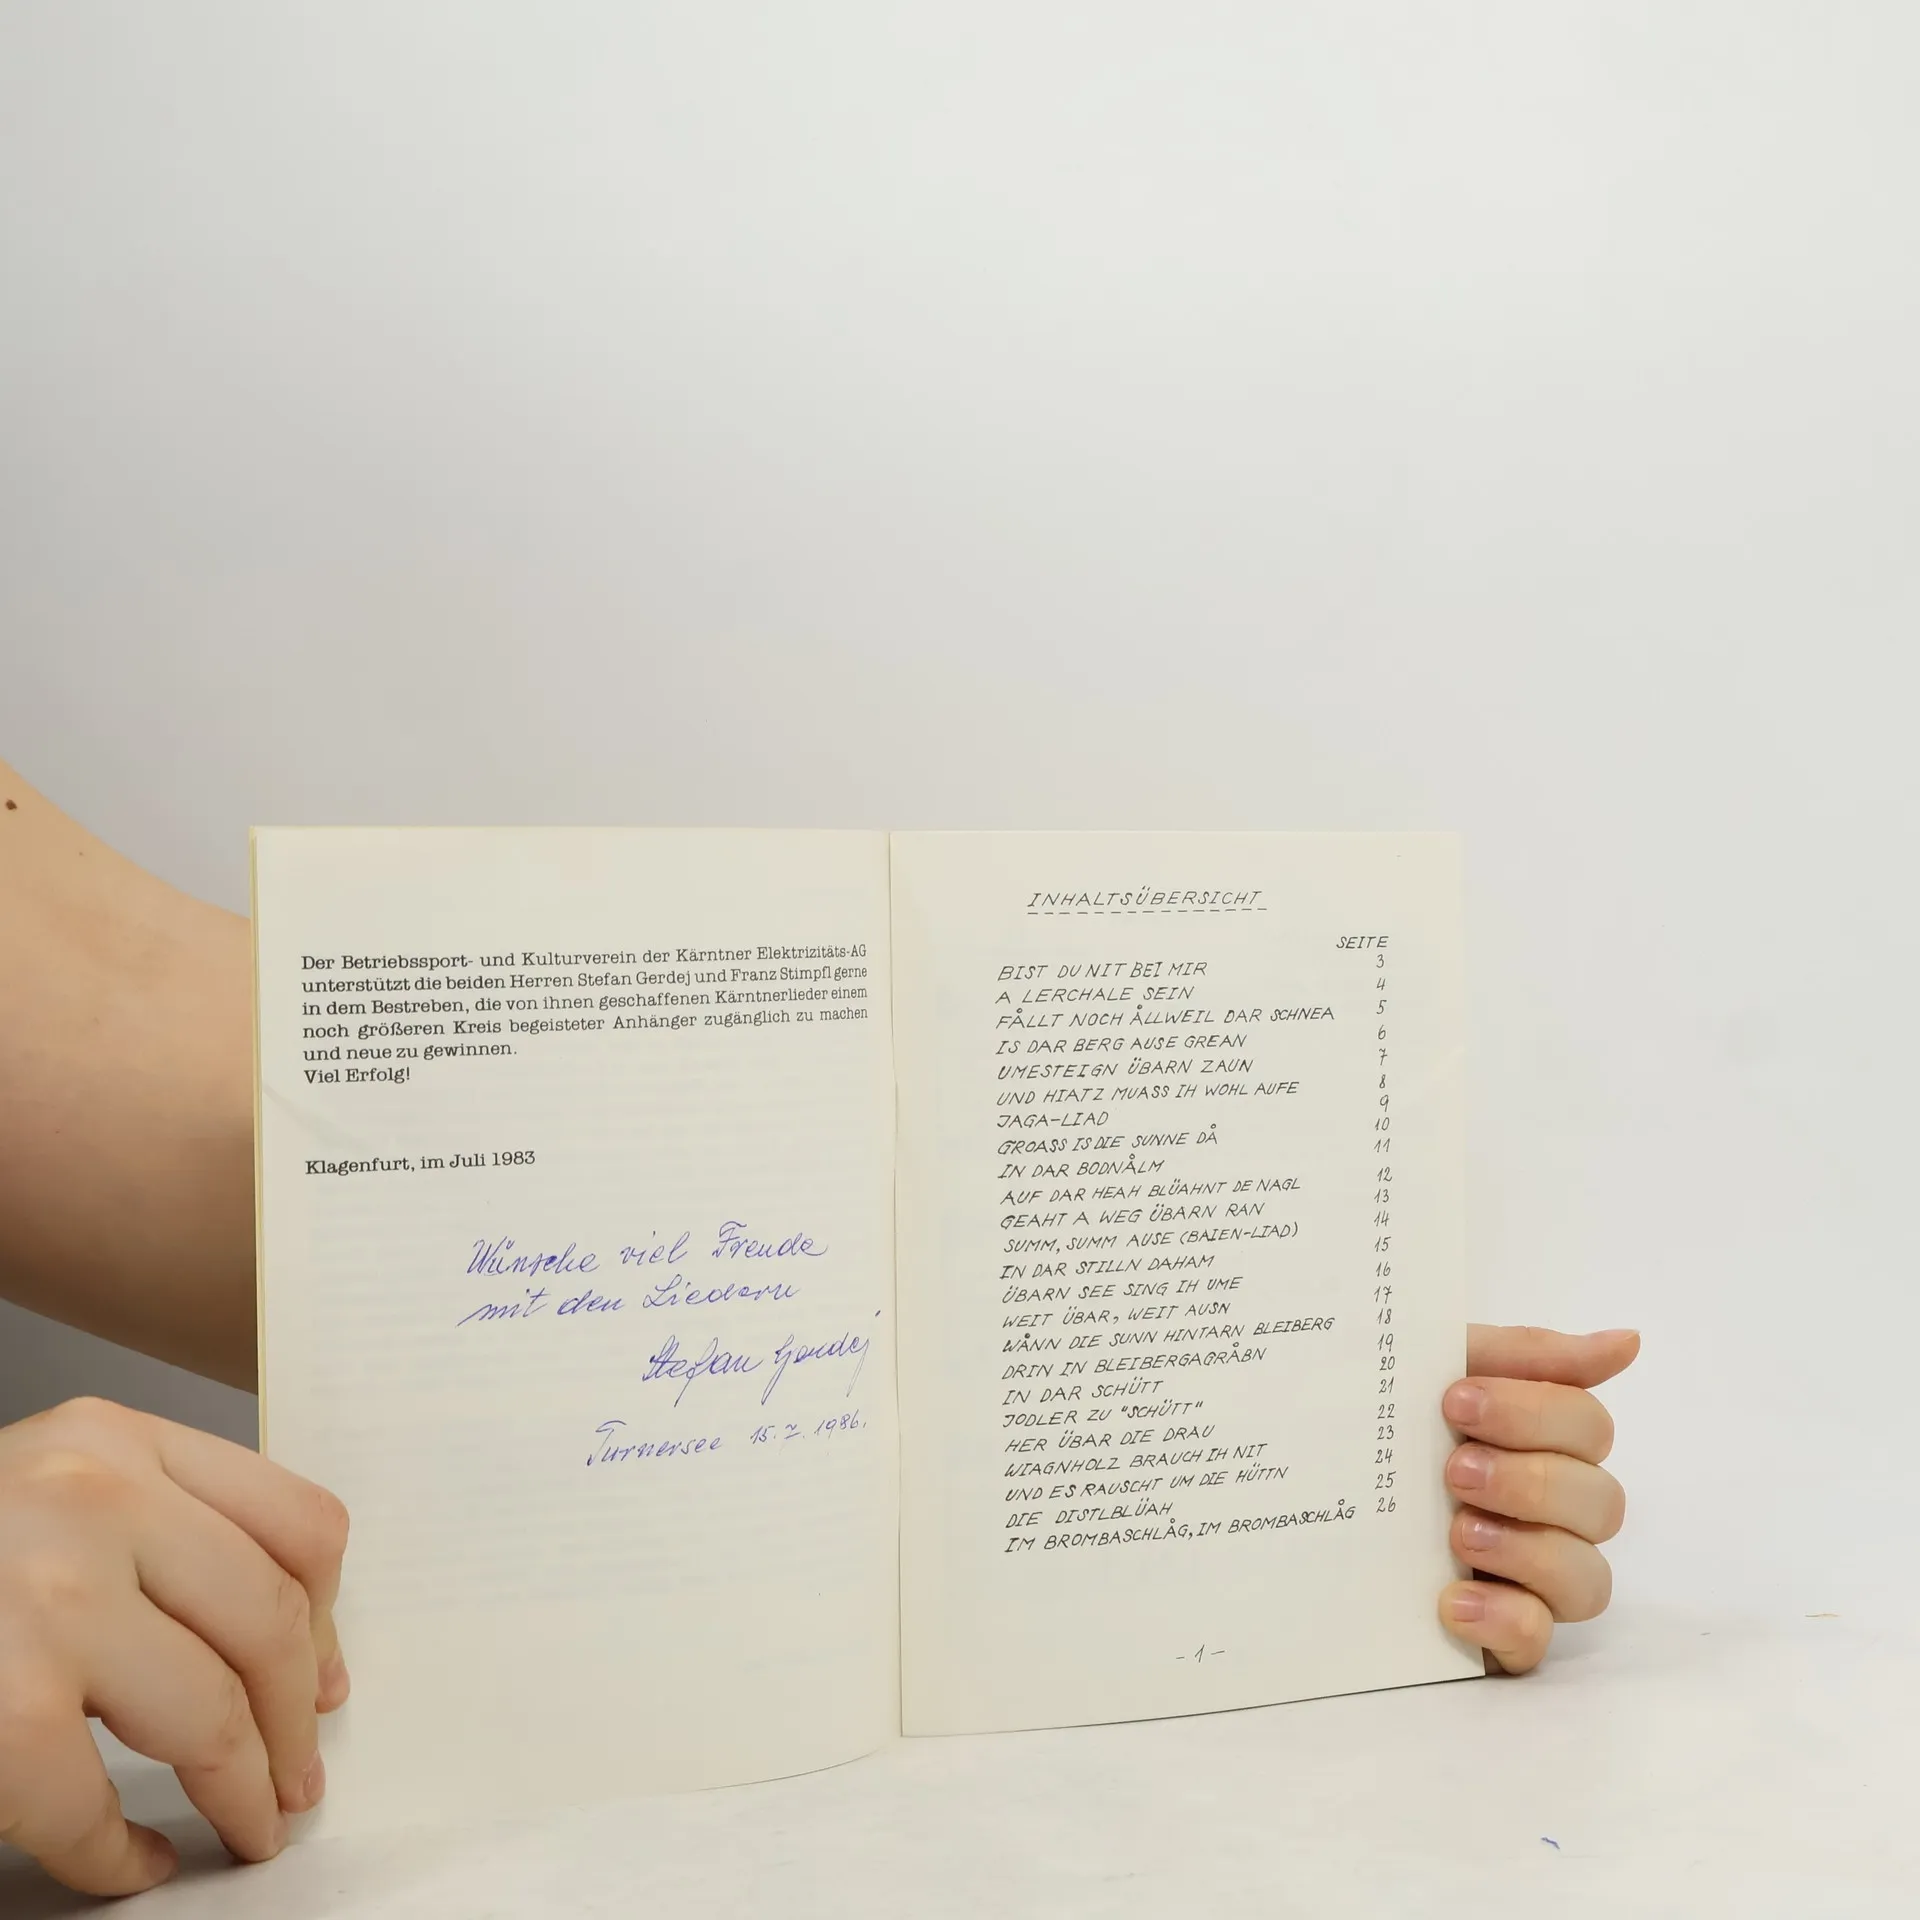 Der Betriebssport- und Kulturverein der Kärntner Elektrizitäts-AG
unterstützt die beiden Herren Stefan Gerdej und Franz Stimpfl gerne
in dem Bestreben, die von ihnen geschaffenen Kärntnerlieder einem
noch größeren Kreis begeisteter Anhänger zugänglich zu machen
und neue zu gewinnen.
Viel Erfolg!
Klagenfurt, im Juli 1983
Wünsche viel Freude
mit den Liedern
Stefan Gerdej
Turnersee 15.7.1986.
INHALTSÜBERSICHT
SEITE
BIST DU NIT BEI MIR 3
A LERCHALE SEIN 4
FÅLLT NOCH ÅLLWEIL DAR SCHNEA 5
IS DAR BERG AUSE GREAN 6
UMESTEIGN ÜBARN ZAUN 7
UND HIATZ MUASS IH WOHL AUFE 8
JAGA-LIAD 9
GROASS IS DIE SUNNE DÅ 10
IN DAR BODNÅLM 11
AUF DAR HEAH BLÜAHNT DE NAGL 12
GEAHT A WEG ÜBARN RAN 13
SUMM, SUMM AUSE (BAIEN-LIAD) 14
IN DAR STILLN DAHAM 15
ÜBARN SEE SING IH UME 16
WEIT ÜBAR, WEIT AUSN 17
WÅNN DIE SUNN HINTARN BLEIBERG 18
DRIN IN BLEIBERGAGRÅBN 19
IN DAR SCHÜTT 20
JODLER ZU "SCHÜTT" 21
HER ÜBAR DIE DRAU 22
WIAGNHOLZ BRAUCH IH NIT 23
UND ES RAUSCHT UM DIE HÜTTN 24
DIE DISTLBLÜAH 25
IM BROMBASCHLÅG, IM BROMBASCHLÅG 26
- 1 -